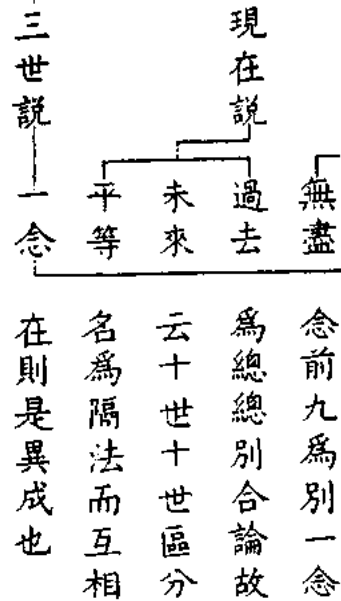 現在說
三世說
無盡
過去
未來
平等
一念
念前九為別一念
為總總別合論故
云十世十世區分
名為隔法而互相
在則是異成也